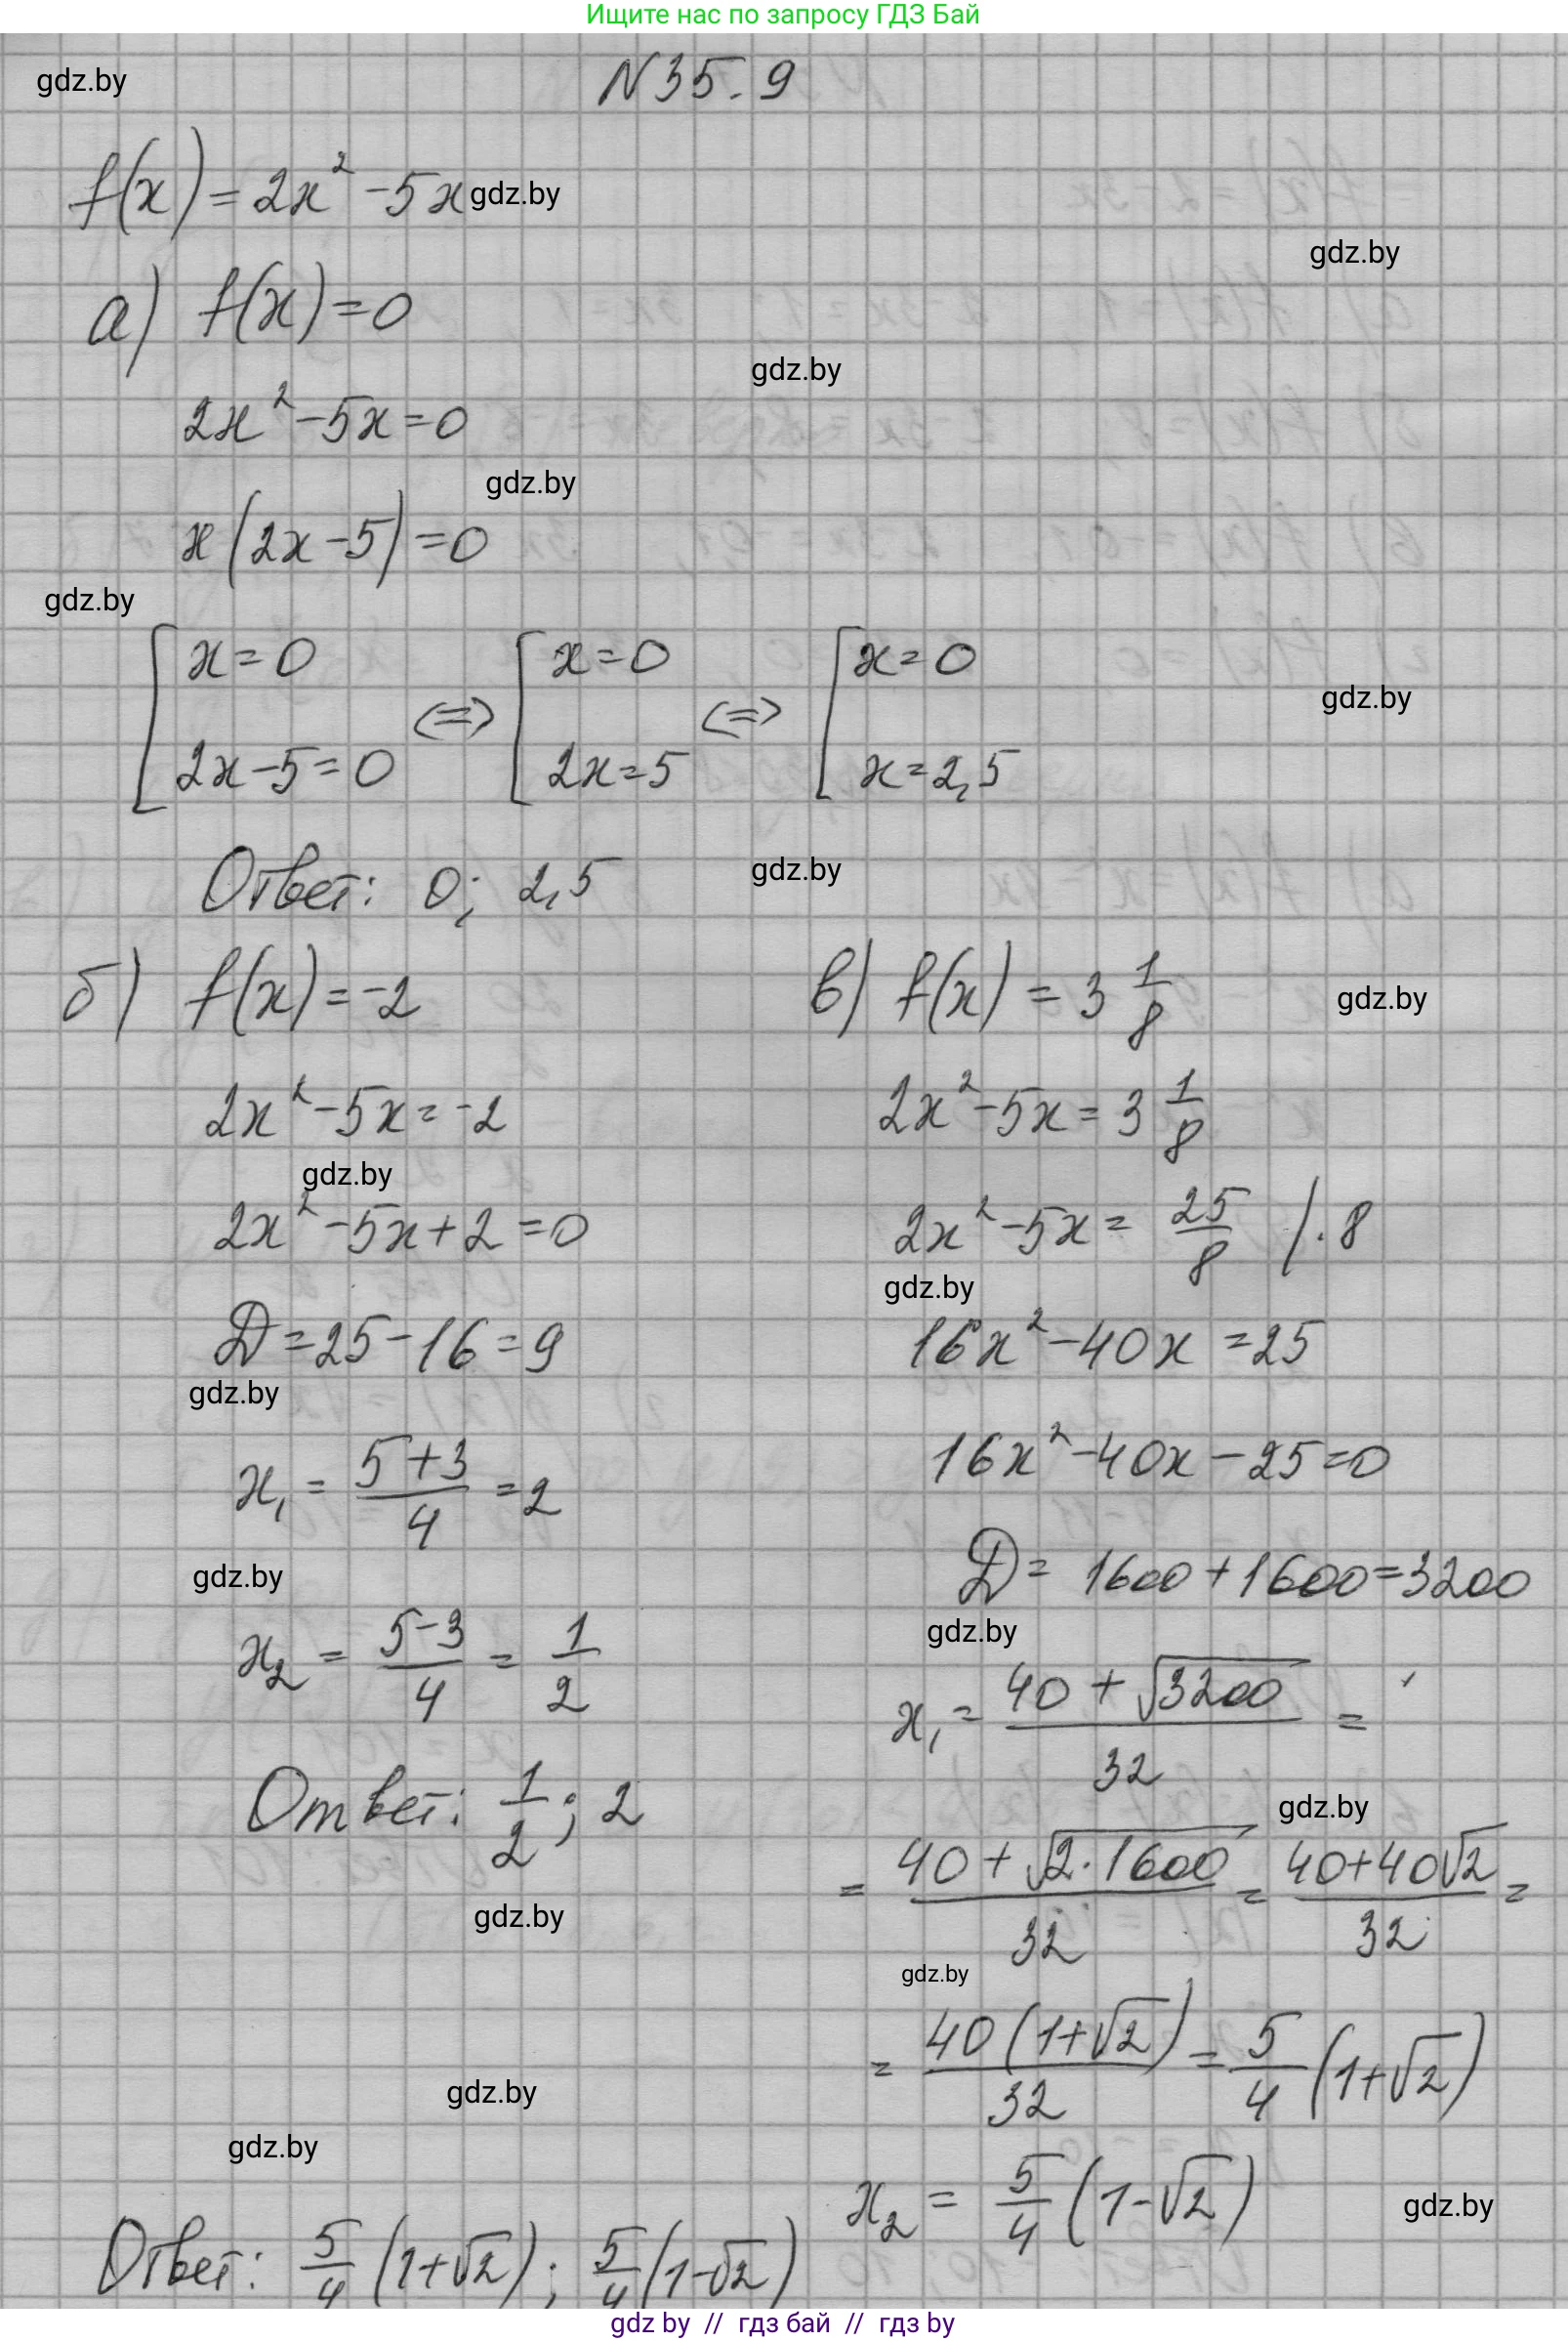 Ищите нас по запросу ГДЗ Бай
gdz.by
N 35.9
f(x) = 2x² - 5x
gdz.by
gdz.by
а) f(x) = 0
gdz.by
2x² - 5x = 0
gdz.by
x(2x - 5) = 0
gdz.by
[ x = 0 ; 2x - 5 = 0 <=> [ x = 0 ; 2x = 5 <=> [ x = 0 ; x = 2,5
gdz.by
Ответ: 0; 2,5
gdz.by
б) f(x) = -2
2x² - 5x = -2
gdz.by
2x² - 5x + 2 = 0
D = 25 - 16 = 9
gdz.by
x₁ = (5 + 3)/4 = 2
gdz.by
x₂ = (5 - 3)/4 = 1/2
Ответ: 1/2; 2
gdz.by
в) f(x) = 3 1/8
gdz.by
2x² - 5x = 3 1/8
2x² - 5x = 25/8 | · 8
gdz.by
16x² - 40x = 25
16x² - 40x - 25 = 0
D = 1600 + 1600 = 3200
gdz.by
x₁ = (40 + √3200)/32 =
gdz.by
= (40 + √2·1600)/32 = (40 + 40√2)/32 =
gdz.by
= 40(1 + √2)/32 = 5/4 (1 + √2)
gdz.by
gdz.by
x₂ = 5/4 (1 - √2)
gdz.by
Ответ: 5/4 (1 + √2); 5/4 (1 - √2)
gdz by // гдз бай // gdz by